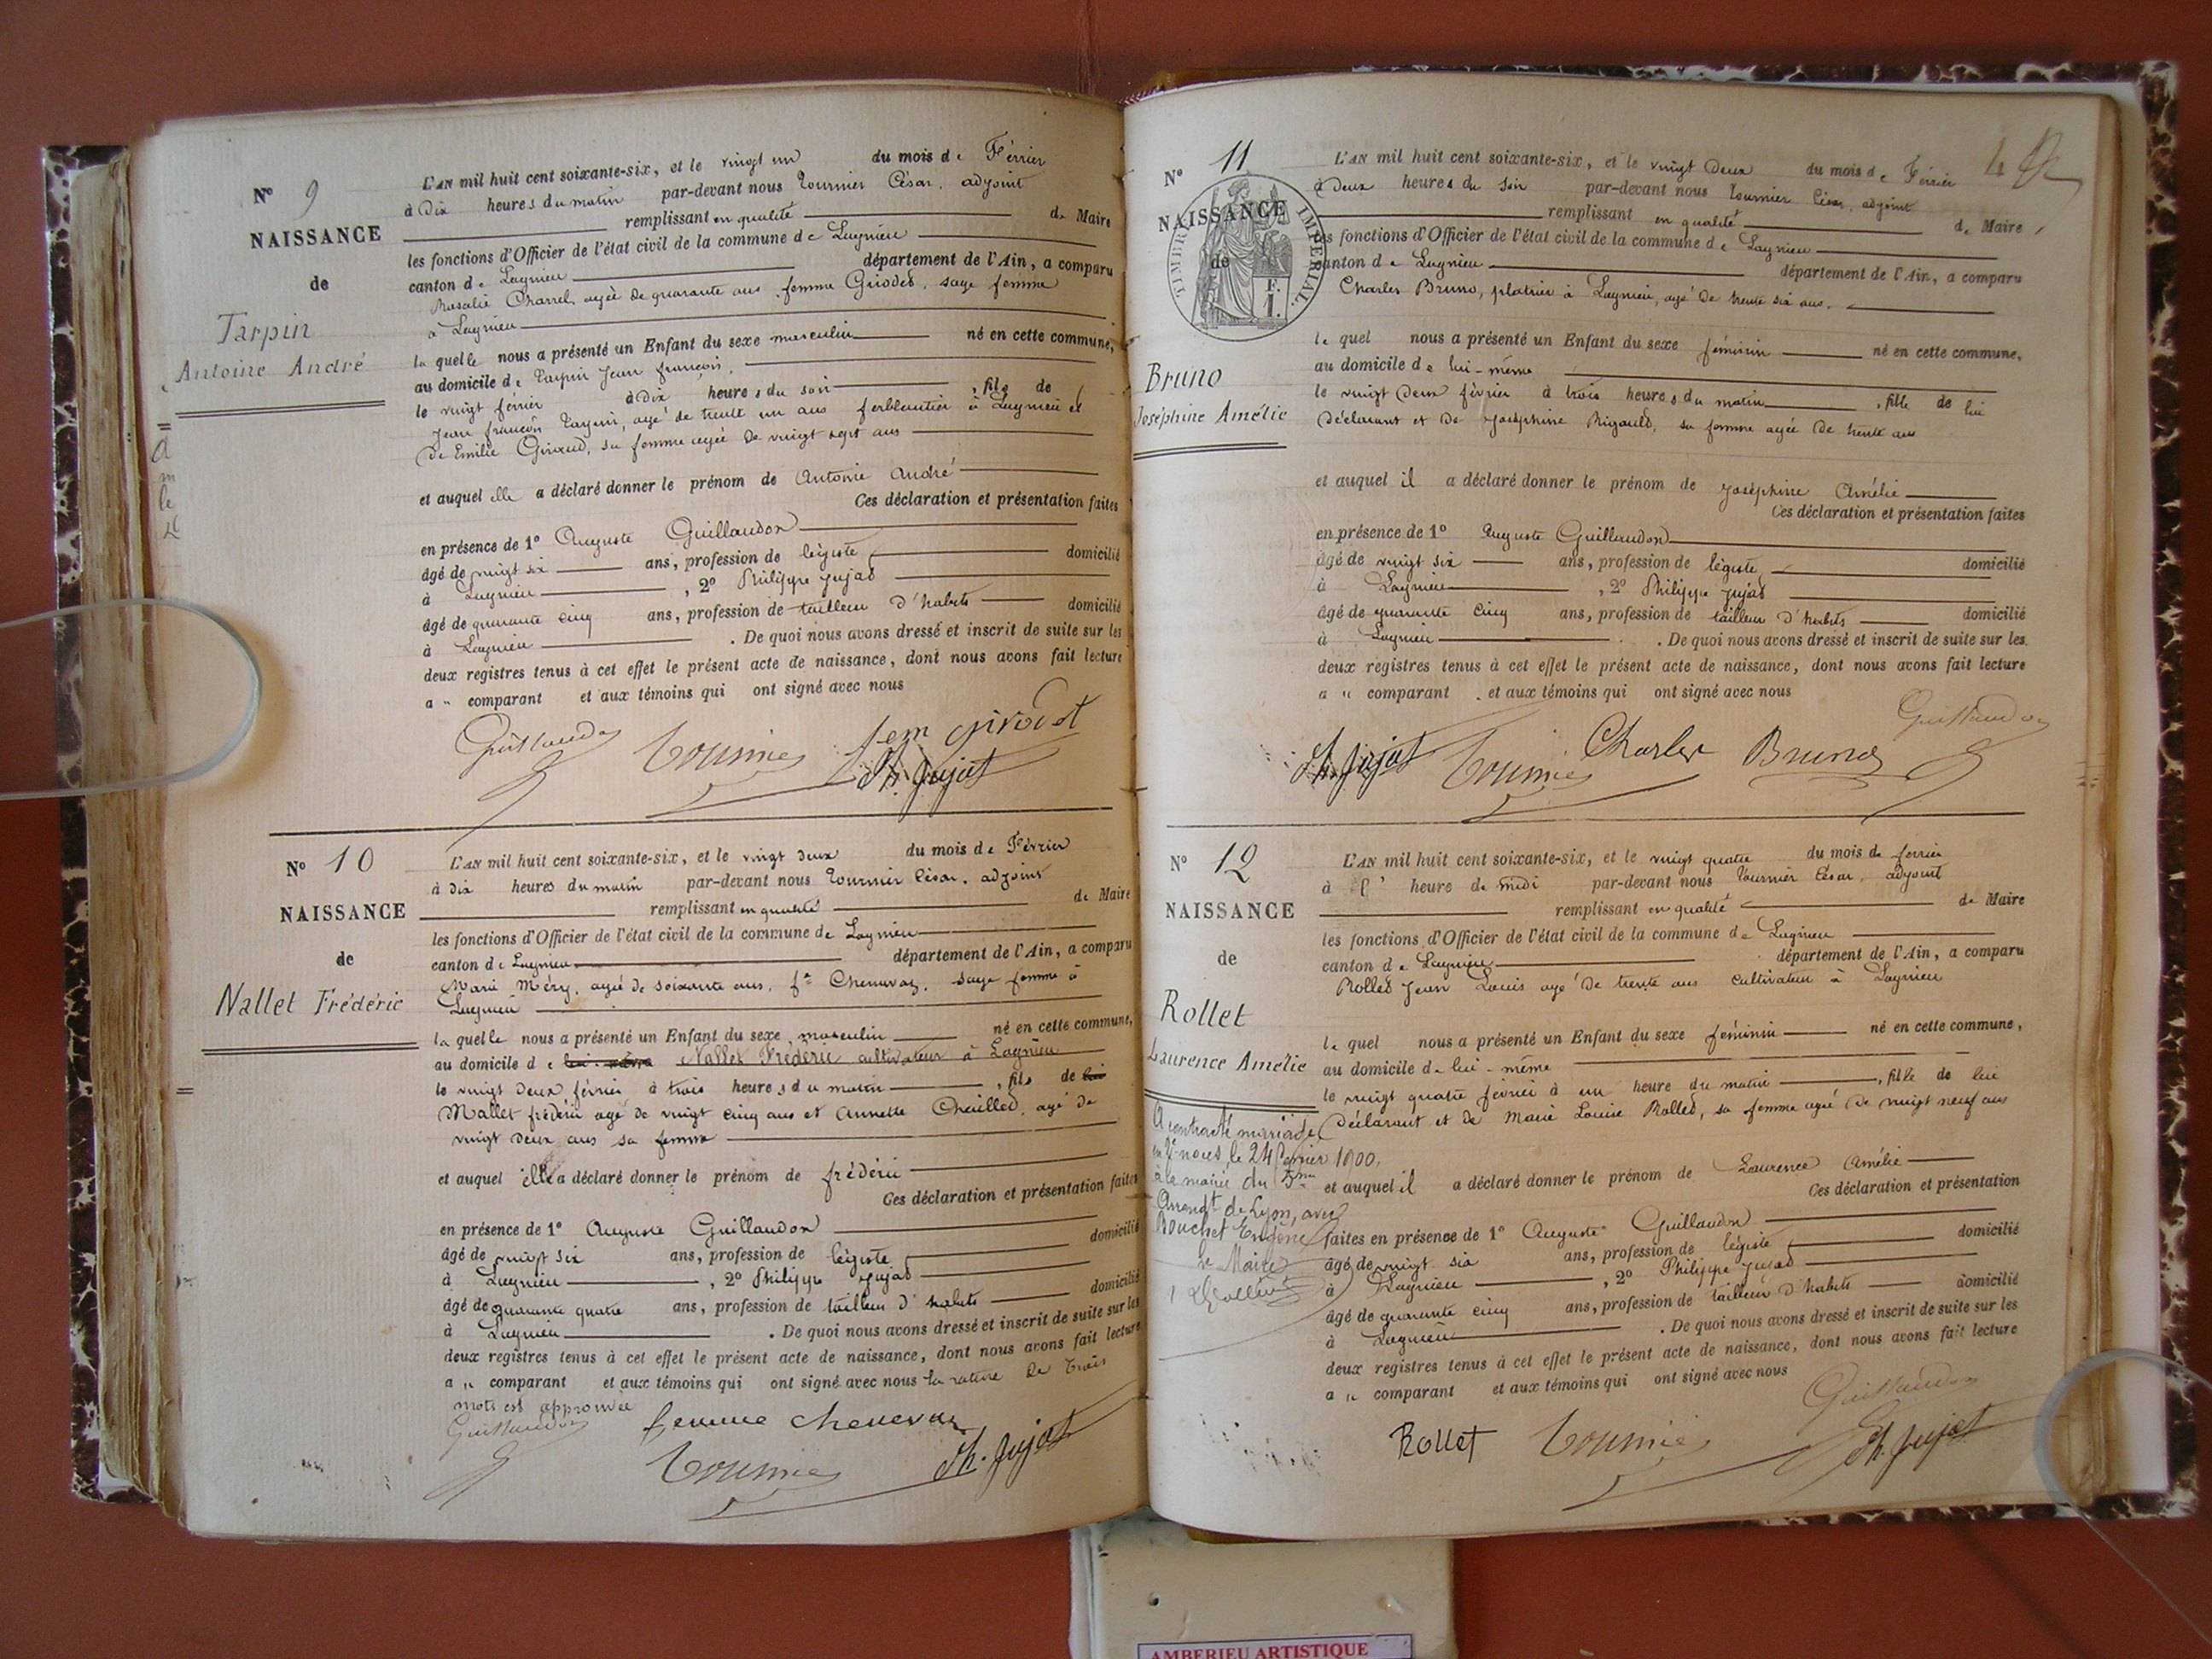 N° 9
NAISSANCE
de
Tarpin
Antoine André
L'AN mil huit cent soixante-six, et le vingt un du mois de Février
à Dix heures du matin par-devant nous Tournier César, adjoint
remplissant en qualité de Maire
les fonctions d'Officier de l'état civil de la commune de Lagnieu
canton de Lagnieu département de l'Ain, a comparu
Rosalie Charrel, agée de quarante ans, femme Girodet, sage femme
à Lagnieu
laquelle nous a présenté un Enfant du sexe masculin né en cette commune,
au domicile de Tarpin Jean françois,
le vingt février à Dix heures du soir, fils de
Jean françois Tarpin, agé de trente un ans ferblantier à Lagnieu et
De Emilie Giraud, sa femme agée de vingt sept ans
et auquel elle a déclaré donner le prénom de Antoine André
Ces déclaration et présentation faites
en présence de 1° Auguste Guillaudon
âgé de vingt six ans, profession de légiste domicilié
à Lagnieu, 2° Philippe Jujat
âgé de quarante cinq ans, profession de tailleur d'habits domicilié
à Lagnieu. De quoi nous avons dressé et inscrit de suite sur les
deux registres tenus à cet effet le présent acte de naissance, dont nous avons fait lecture
a " comparant et aux témoins qui ont signé avec nous
Guillaudon Tournier fem girodet
Ph. Jujat
N° 10
NAISSANCE
de
Nallet Frédéric
L'AN mil huit cent soixante-six, et le vingt deux du mois de Février
à dix heures du matin par-devant nous Tournier César, adjoint
remplissant en qualité de Maire
les fonctions d'Officier de l'état civil de la commune de Lagnieu
canton de Lagnieu département de l'Ain, a comparu
Marie Méry, agée de soixante ans, fe Chenavaz, sage femme à
Lagnieu
laquelle nous a présenté un Enfant du sexe masculin né en cette commune,
au domicile de lui-même Nallet Frédéric cultivateur à Lagnieu
le vingt deux février à trois heures du matin, fils de lui
Mallet frédéric agé de vingt cinq ans et Annette Cheillet, agé de
vingt deux ans sa femme
et auquel elle a déclaré donner le prénom de frédéric
Ces déclaration et présentation faites
en présence de 1° Auguste Guillaudon
âgé de vingt six ans, profession de légiste domicilié
à Lagnieu, 2° Philippe Jujat
âgé de quarante quatre ans, profession de tailleur d'habits domicilié
à Lagnieu. De quoi nous avons dressé et inscrit de suite sur les
deux registres tenus à cet effet le présent acte de naissance, dont nous avons fait lecture
a " comparant et aux témoins qui ont signé avec nous la rature de trois
mots est approuvée
Guillaudon femme chenevaz
Tournier Ph. Jujat
N° 11
NAISSANCE
de
TIMBRE IMPERIAL
1 F.
Bruno
Joséphine Amélie
L'AN mil huit cent soixante-six, et le vingt Deux du mois de Février
à Deux heures du soir par-devant nous Tournier César, adjoint
remplissant en qualité de Maire
les fonctions d'Officier de l'état civil de la commune de Lagnieu
canton de Lagnieu département de l'Ain, a comparu
Charles Bruno, platrier à Lagnieu, agé de trente six ans,
lequel nous a présenté un Enfant du sexe féminin né en cette commune,
au domicile de lui-même
le vingt Deux février à trois heures du matin, fille de lui
Déclarant et De Joséphine Rigauld, sa femme agée De trente ans
et auquel il a déclaré donner le prénom de Joséphine Amélie
Ces déclaration et présentation faites
en présence de 1° Auguste Guillaudon
âgé de vingt six ans, profession de légiste domicilié
à Lagnieu, 2° Philippe Jujat
âgé de quarante cinq ans, profession de tailleur d'habits domicilié
à Lagnieu. De quoi nous avons dressé et inscrit de suite sur les
deux registres tenus à cet effet le présent acte de naissance, dont nous avons fait lecture
a " comparant et aux témoins qui ont signé avec nous
Ph. Jujat Tournier Charles Bruno Guillaudon
N° 12
NAISSANCE
de
Rollet
Laurence Amélie
A contracté mariage
en 2e noces le 24 février 1900,
à la mairie du 5me
Arrondt de Lyon, avec
Bouchet Eugène
Le Maire
L'AN mil huit cent soixante-six, et le vingt quatre du mois de février
à l' heure de midi par-devant nous Tournier César, adjoint
remplissant en qualité de Maire
les fonctions d'Officier de l'état civil de la commune de Lagnieu
canton de Lagnieu département de l'Ain, a comparu
Rollet Jean Louis agé De trente ans cultivateur à Lagnieu
lequel nous a présenté un Enfant du sexe féminin né en cette commune,
au domicile de lui-même
le vingt quatre février à un heure du matin, fille de lui
Déclarant et de Marie Louise Rollet, sa femme agée De vingt neuf ans
et auquel il a déclaré donner le prénom de Laurence Amélie
Ces déclaration et présentation
faites en présence de 1° Auguste Guillaudon
âgé de vingt six ans, profession de légiste domicilié
à Lagnieu, 2° Philippe Jujat
âgé de quarante cinq ans, profession de tailleur d'habits domicilié
à Lagnieu. De quoi nous avons dressé et inscrit de suite sur les
deux registres tenus à cet effet le présent acte de naissance, dont nous avons fait lecture
a " comparant et aux témoins qui ont signé avec nous
Guillaudon
Rollet Tournier Ph. Jujat
AMBERIEU ARTISTIQUE